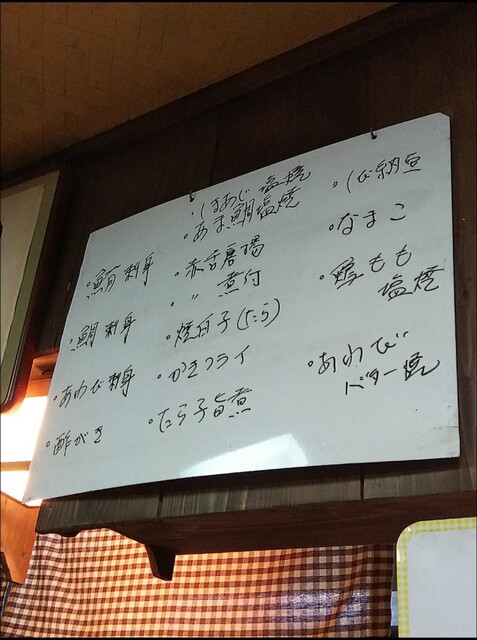 ・鮪刺身
・鯛刺身
・あわび刺身
・酢がき
・しまあじ塩焼
・あま鯛塩焼
・赤舌唐揚
・〃 煮付
・焼白子(たら)
・かきフライ
・たら子旨煮
・しび納豆
・なまこ
・鶏もも
塩焼
・あわび
バター焼